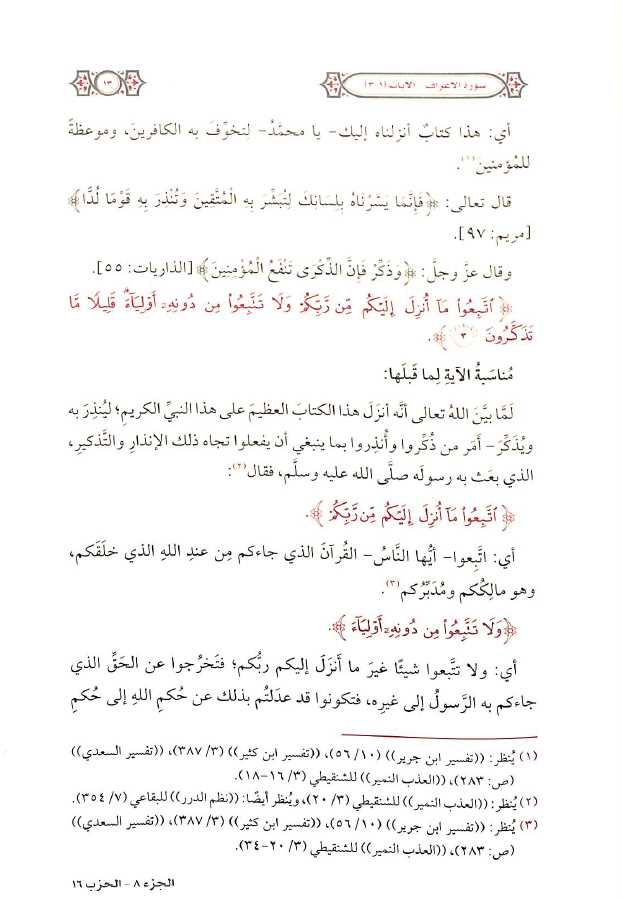 سورة الأعراف الآيات (١-٣)
١٣
أي: هذا كتابٌ أنزلناه إليك- يا محمَّدُ- لتخوِّفَ به الكافرينَ، وموعظةً
للمُؤمنين(١).
قال تعالى: ﴿فَإِنَّمَا يَسَّرْنَاهُ بِلِسَانِكَ لِتُبَشِّرَ بِهِ الْمُتَّقِينَ وَتُنْذِرَ بِهِ قَوْمًا لُدًّا﴾
[مريم: ٩٧].
وقال عزَّ وجلَّ: ﴿وَذَكِّرْ فَإِنَّ الذِّكْرَى تَنْفَعُ الْمُؤْمِنِينَ﴾ [الذاريات: ٥٥].
﴿ ٱتَّبِعُواْ مَآ أُنزِلَ إِلَيْكُم مِّن رَّبِّكُمْ وَلَا تَتَّبِعُواْ مِن دُونِهِۦٓ أَوْلِيَآءَۗ قَلِيلًا مَّا
تَذَكَّرُونَ ٣ ﴾.
مُناسَبةُ الآيةِ لِما قَبلَها:
لَمَّا بيَّنَ اللهُ تعالى أنَّه أنزَلَ هذا الكتابَ العظيمَ على هذا النبيِّ الكريمِ؛ ليُنذِرَ به
ويُذَكِّرَ- أمَر من ذُكِّروا وأُنذِروا بما ينبغي أن يفعلوا تجاه ذلك الإنذارِ والتَّذكيرِ،
الذي بعَث به رسولَه صلَّى الله عليه وسلَّم، فقال(٢):
﴿ ٱتَّبِعُواْ مَآ أُنزِلَ إِلَيْكُم مِّن رَّبِّكُمْ ﴾.
أي: اتَّبِعوا- أيُّها النَّاسُ- القُرآنَ الذي جاءكم مِن عندِ اللهِ الذي خلَقَكم،
وهو مالِكُكم ومُدَبِّرُكم(٣).
﴿وَلَا تَتَّبِعُواْ مِن دُونِهِۦٓ أَوْلِيَآءَ ﴾.
أي: ولا تتَّبعوا شيئًا غيرَ ما أنزَلَ إليكم ربُّكم؛ فتَخرُجوا عن الحَقِّ الذي
جاءكم به الرَّسولُ إلى غيرِه، فتكونوا قد عدَلتُم بذلك عن حُكمِ اللهِ إلى حُكمِ
(١) يُنظر: ((تفسير ابن جرير)) (١٠/ ٥٦)، ((تفسير ابن كثير)) (٣/ ٣٨٧)، ((تفسير السعدي))
(ص: ٢٨٣)، ((العذب النمير)) للشنقيطي (٣/ ١٦-١٨).
(٢) يُنظر: ((العذب النمير)) للشنقيطي (٣/ ٢٠)، ويُنظر أيضًا: ((نظم الدرر)) للبقاعي (٧/ ٣٥٤).
(٣) يُنظر: ((تفسير ابن جرير)) (١٠/ ٥٦)، ((تفسير ابن كثير)) (٣/ ٣٨٧)، ((تفسير السعدي))
(ص: ٢٨٣)، ((العذب النمير)) للشنقيطي (٣/ ٢٠-٣٤).
الجزء ٨ - الحزب ١٦